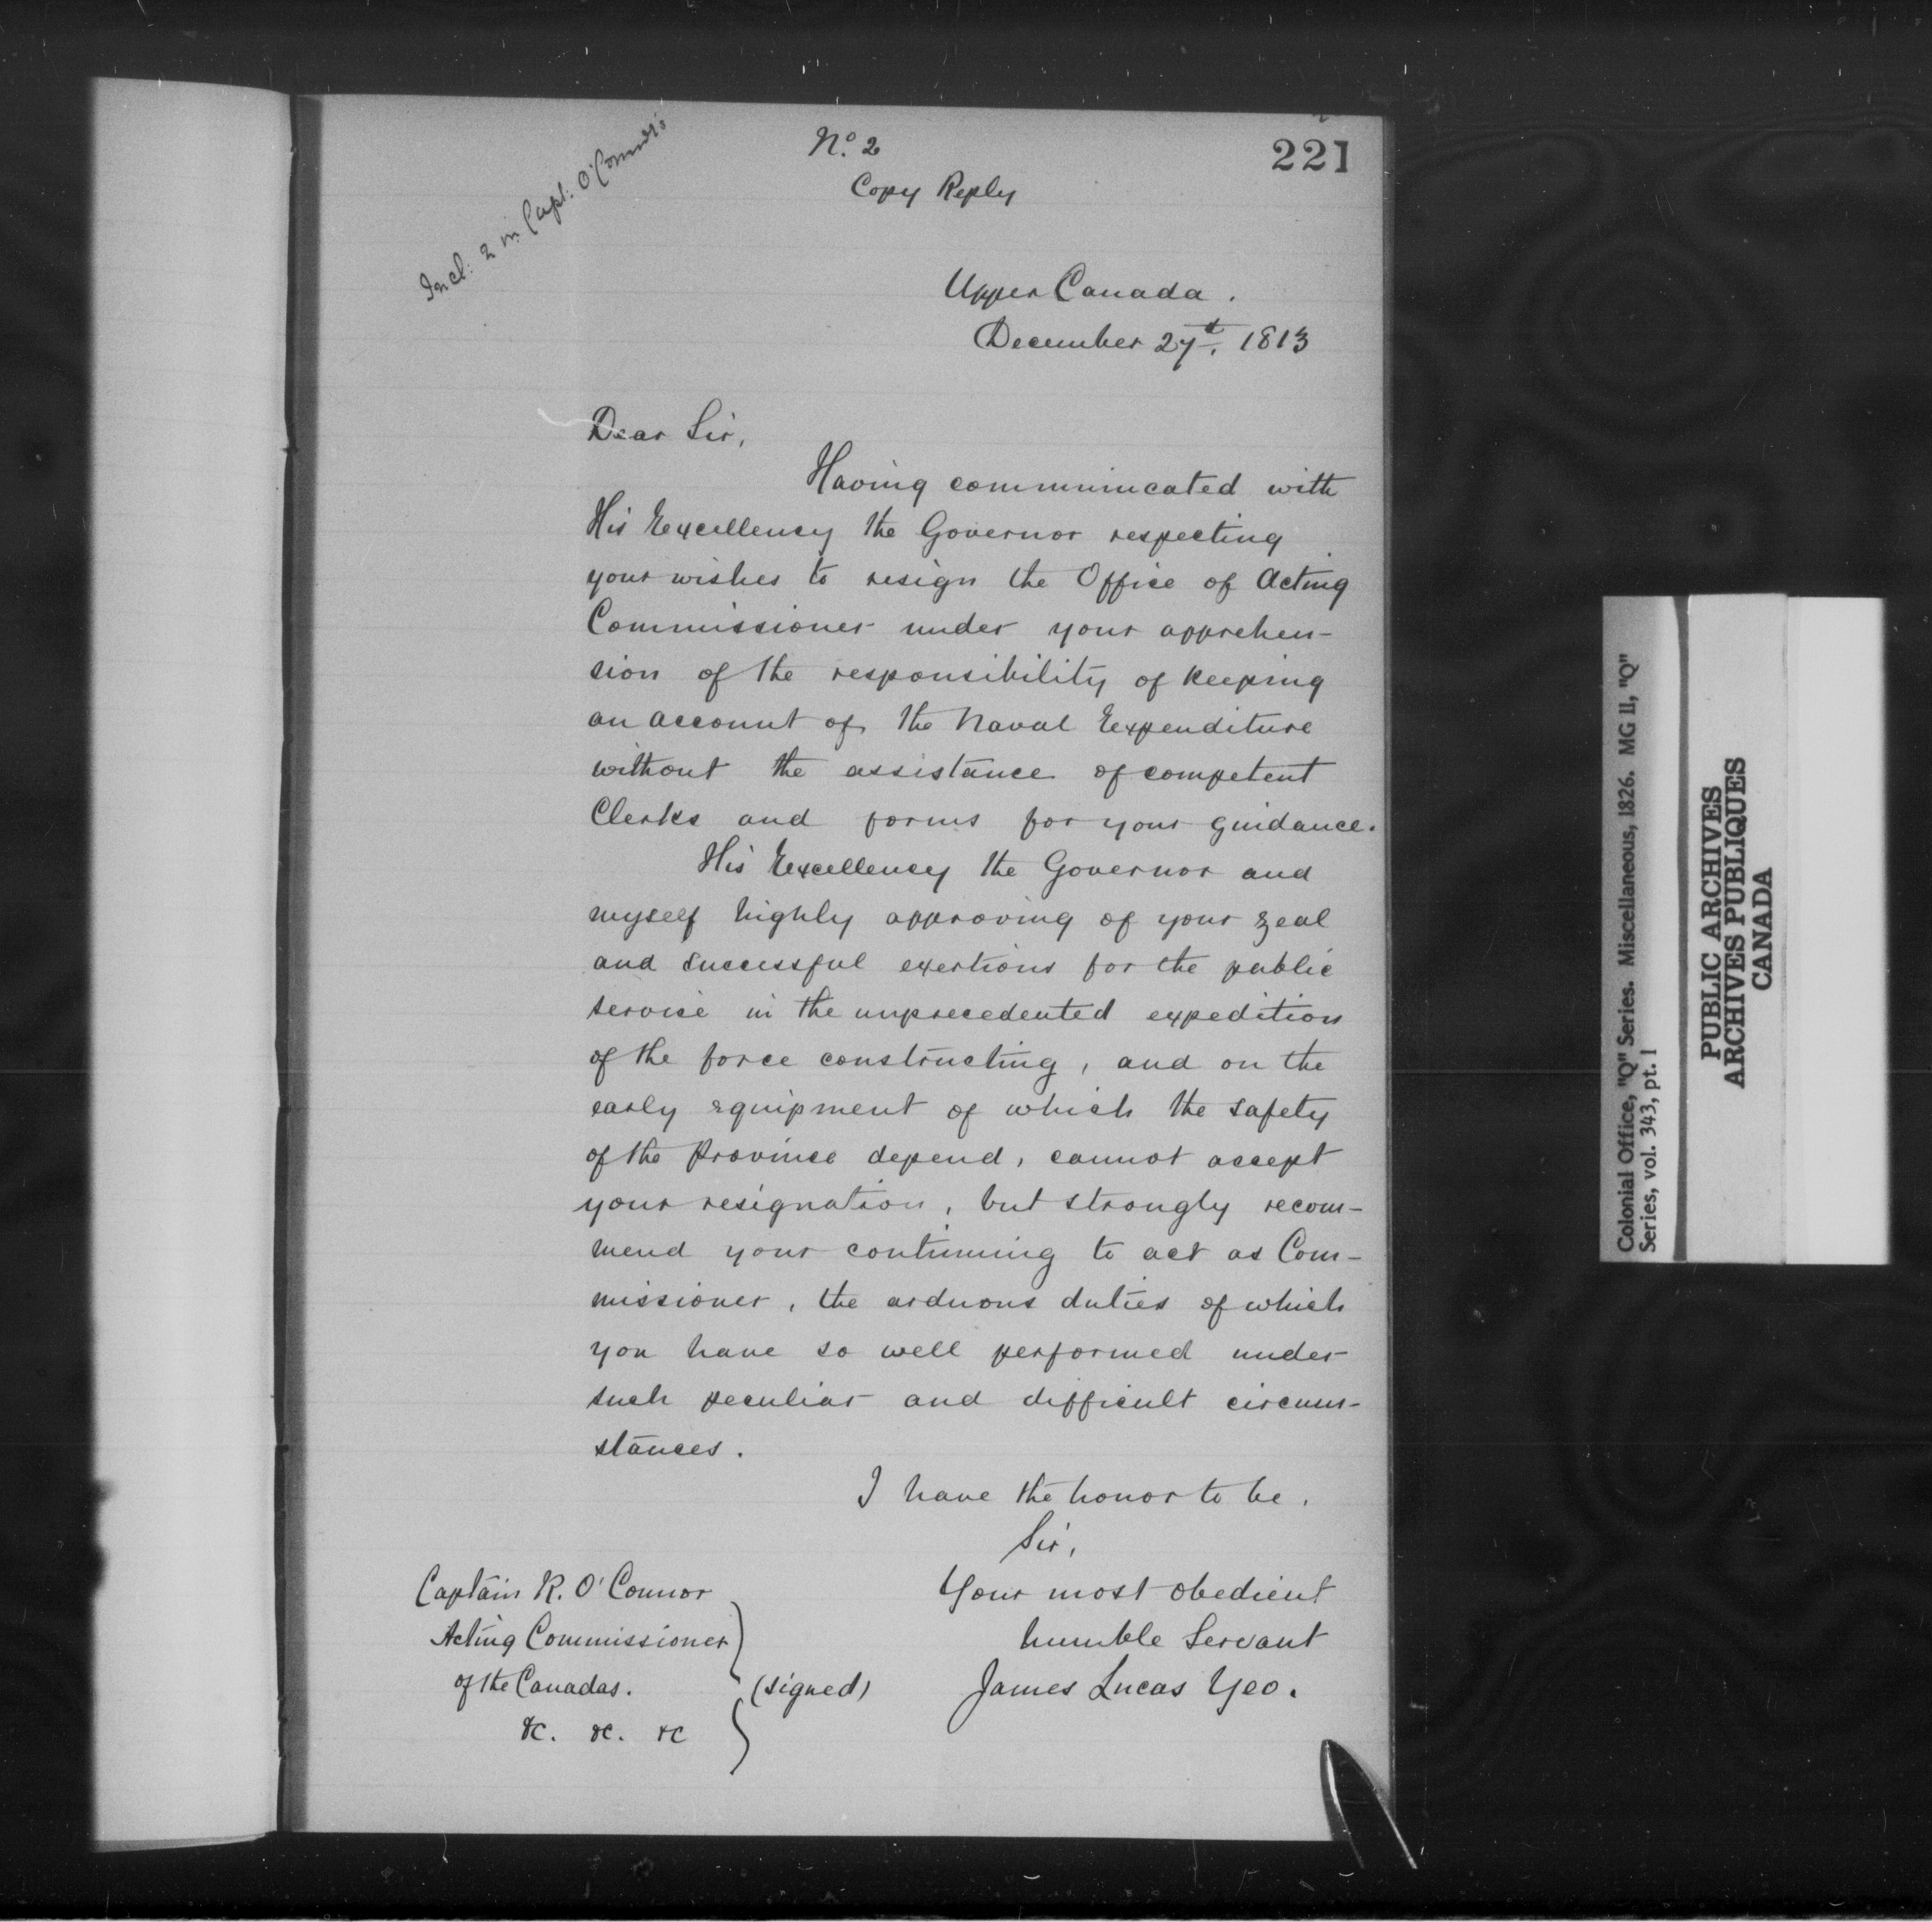 221
Incl: 2 in Capt: O'Connor's
No. 2
Copy Reply
Upper Canada.
December 27th. 1813
Dear Sir,
Having communicated with
His Excellency the Governor respecting
your wishes to resign the Office of Acting
Commissioner under your apprehen-
sion of the responsibility of keeping
an account of the Naval Expenditure
without the assistance of competent
Clerks and forms for your guidance.
His Excellency the Governor and
myself highly approving of your zeal
and successful exertions for the public
service in the unprecedented expedition
of the force constructing, and on the
early equipment of which the safety
of the Province depend, cannot accept
your resignation, but strongly recom-
mend your continuing to act as Com-
missioner, the arduous duties of which
you have so well performed under
such peculiar and difficult circum-
stances.
I have the honor to be,
Sir,
Your most obedient
humble Servant
(signed) James Lucas Yeo.
Captain R. O'Connor
Acting Commissioner
of the Canadas.
&c. &c. &c
Colonial Office, "Q" Series. Miscellaneous, 1826. MG 11, "Q"
Series, vol. 343, pt. 1
PUBLIC ARCHIVES
ARCHIVES PUBLIQUES
CANADA